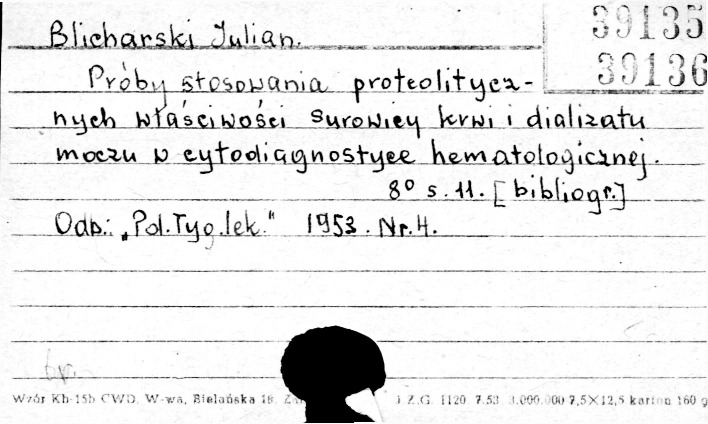 Blicharski Julian.
39135
39136
Próby stosowania proteolitycz-
nych właściwości surowicy krwi i dializatu
moczu w cytodiagnostyce hematologicznej.
8° s. 11. [bibliogr.]
Odb.: „Pol. Tyg. lek." 1953. Nr. 4.
Wzór Kh-15b CWD. W-wa, Bielańska 18. Z.G. 1120. 7.53. 3.000.000 7,5×12,5 karton 160 g